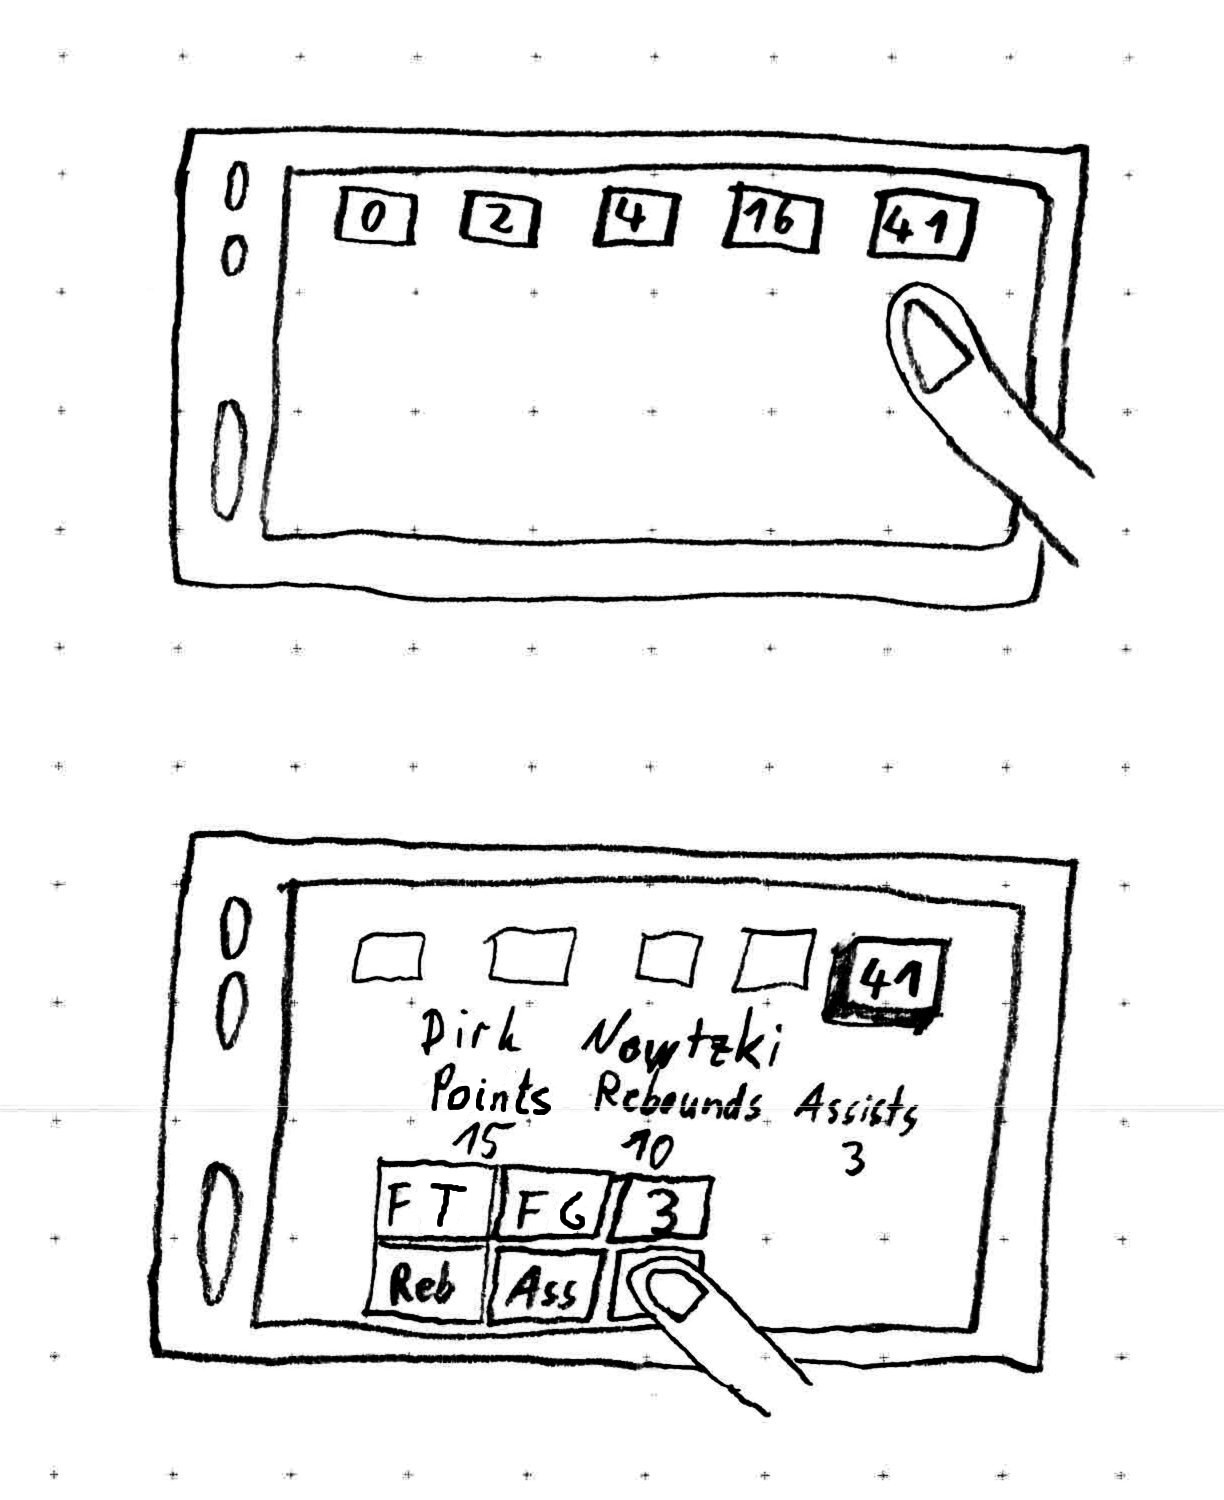 0 2 4 16 41
41
Dirk Nowtzki
Points Rebounds Assists
15 10 3
FT FG 3
Reb Ass